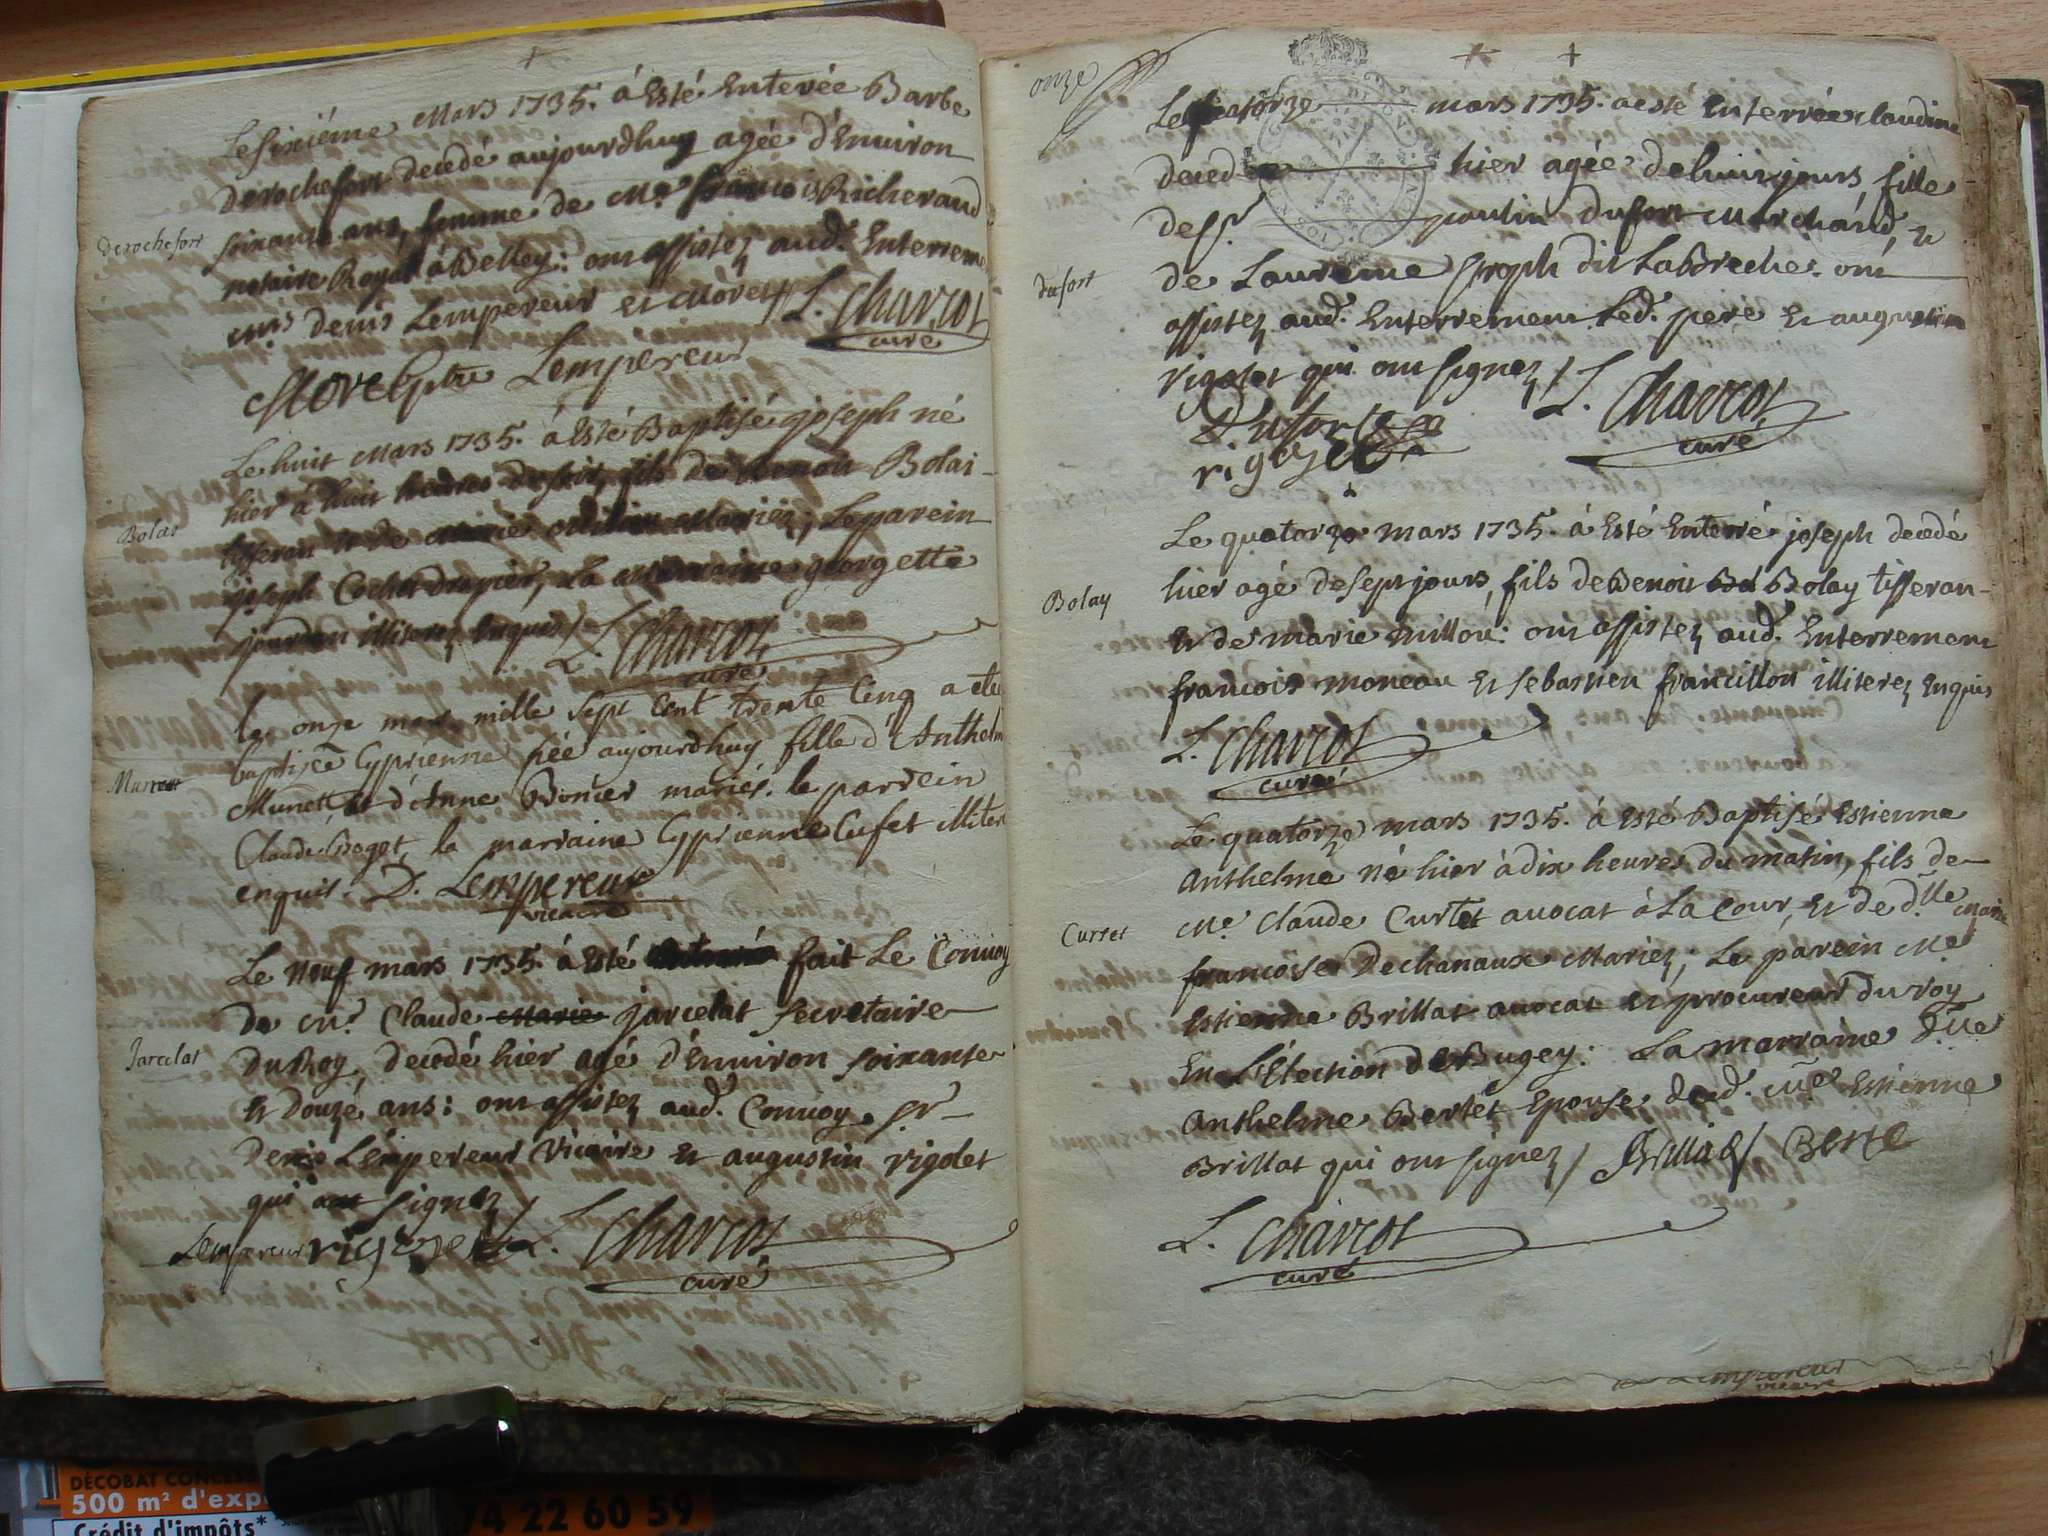 Le sixiéme Mars 1735. á Esté Enterée Barbe
Derochefort decedé aujourdhuy agée d'Environ
soixante ans, femme de Me. francois Richerand
notaire Royal á Belley: ont assistez aud. Enterrem
denis Lempereur et Morel / L. Charcot
curé
Derochefort
Morel ptre Lempereur
Le huit Mars 1735. á Esté Baptisé joseph né
hier á huit heures de soir, fils de Benoit Bolai
Tisseran et de Marie Mariez; Le parein
joseph Cochet drapier, La Marraine georgette
jourdan illiterez Enquis / L. Charcot
curé
Bolai
le onze mars mille sept cent trente cinq a eté
baptisée Cyprienne née aujourdhuy fille d'Anthelm
Munet et d'Anne Bonier mariés. le parrein
Claude Boget, la marraine Cyprienne Cufet illiter
enquis. D. Lempereur
vicaire
Munet
Le neuf mars 1735. á Esté fait Le Convoy
De Mr. Claude Marie jarcelat secretaire
Du Roy, decedé hier agé d'Environ soixante
Et douze ans: ont assistez aud. Convoy sr
Denis Lempereur Vicaire et augustin rigolet
qui ont signez /
Jarcelat
Lempereur rigolet L. Charcot
curé
onze
Le quatorze mars 1735. a esté Enterrée claudine
decedée hier agée de huit jours, fille
de sr. poulin Dufort Marchand, et
de Laurence dit LaBreche. ont
assistez aud. Enterrement Led. pere Et augustin
rigolet qui ont signez / L. Charcot
curé
dufort
Dufort
rigolet
Le quatorze mars 1735. á Esté Enterré joseph decedé
hier agé de sept jours, fils de Benoit Bolay tisseran
et de marie millou: ont assistez aud. Enterrement
francois moneau Et sebastien francillon illiterez Enquis
Bolay
L. Charcot
curé
Le quatorze mars 1735. á Esté Baptisé Estienne
Anthelme né hier á dix heures du matin, fils de
Me. Claude Curtet avocat á La Cour, et de dlle marie
francoise Dechanaux Mariez; Le parein Me
Estienne Brillat avocat et procureur du roy
En L'Election de Bugey: La marraine Dlle
Anthelme Bertet Epouse dud. Me Estienne
Brillat qui ont signez / Brillat / Berte
Curtet
L. Charcot
curé
Lempereur
vicaire
DÉCOBAT
500 m² d'exp
Crédit d'impôts*
74 22 60 59